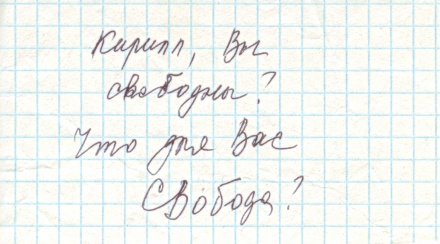 Кирилл, Вы
свободны?
Что для Вас
Свобода?